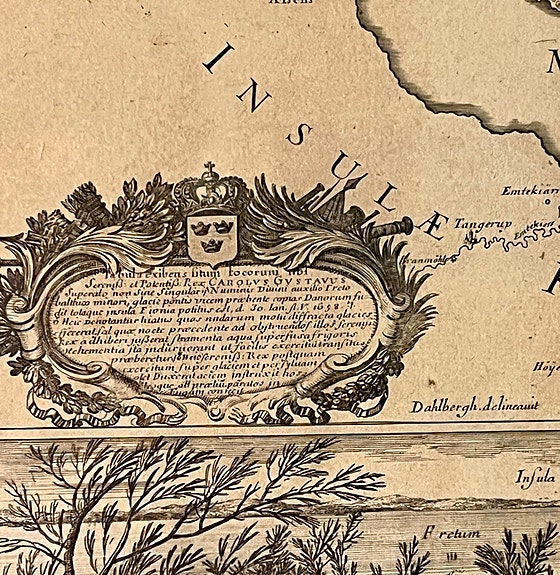 INSULÆ
Emtekiær
Tangerup
Emtekiær
Tabula exibens situm locorum ubi
Sereniss: et Potentiss: Rex CAROLVS GVSTAVUS
Superato non sine singulari Numinis Divini auxilio Freto
balthico minori, glacie pontis vicem præbente copias Danorum fu
dit totaque insula Fionia potitus est, d. 30. Ian. s.V. 1658.
Heic denotantur hiatus quos nudiustertius molis diffracta glacies
effecerat, ad quæ nocte præcedente ad obstruendos illos, sereniss:
Rex adhiberi jußerat stramenta aqua superfusa frigoris
vehementia sta indurierant ut facilis exercitui transitus
præberetur. Sereniss: Rex postquam
exercitum super glaciem et per sylvam
in aciem instruxit hos
tesque, sui prælii paratos in
fugam conjecit
Høye
Dahlbergh. delineavit
Insula
Fretum